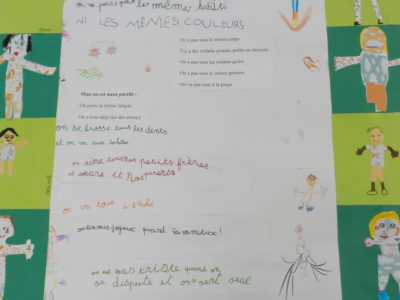 on ne porte pas les même habits
NI LES MÊMES COULEURS
On a pas tous le même corps
Il y a des enfants grands, petits ou moyens
On a pas tous les mêmes goûts
On a pas tous le même prénom
On va pas tous à la plage
Mais on est aussi pareils :
On parle la même langue
On a tous déjà fait des erreurs
on se brosse tous les dents
et on va aux toilettes
on aime tous nos petits frères
et soeurs et nos parents
on va tous à l'école
on est tous joyeux quand on s'amuse !
on est tous triste quand on
se dispute et on se sent seul